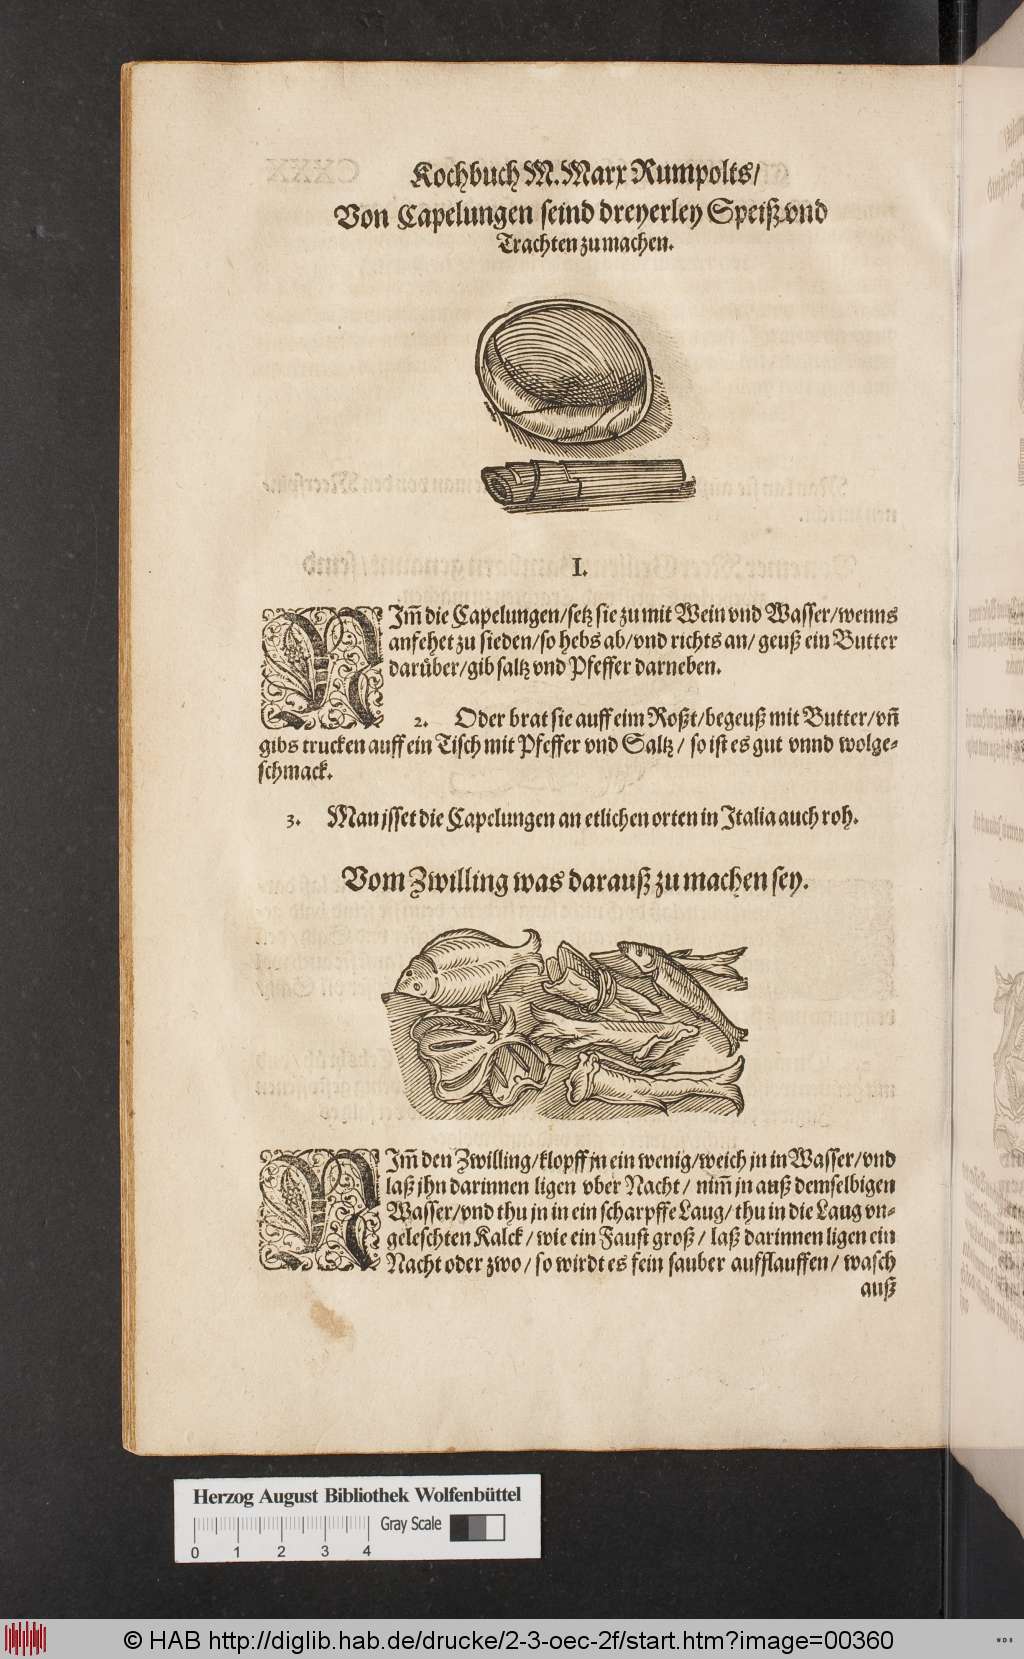 Kochbuch M. Marx Rumpolts/
Von Capelungen seind dreyerley Speiß vnd
Trachten zu machen.
I.
NIm̃ die Capelungen/setz sie zu mit Wein vnd Wasser/wenns
anfehet zu sieden/so hebs ab/vnd richts an/ geuß ein Butter
darüber/gib saltz vnd Pfeffer darneben.
2. Oder brat sie auff eim Roßt/begeuß mit Butter/vñ
gibs trucken auff ein Tisch mit Pfeffer vnd Saltz/ so ist es gut vnnd wolge-
schmack.
3. Man jsset die Capelungen an etlichen orten in Italia auch roh.
Vom Zwilling was darauß zu machen sey.
NIm̃ den Zwilling/klopff jn ein wenig/weich jn in Wasser/vnd
laß jhn darinnen ligen vber Nacht/ nim̃ jn auß demselbigen
Wasser/vnd thu jn in ein scharpffe Laug/ thu in die Laug vn-
geleschten Kalck/ wie ein Faust groß/ laß darinnen ligen ein
Nacht oder zwo/ so wirdt es fein sauber aufflauffen/ wasch
auß
Herzog August Bibliothek Wolfenbüttel
Gray Scale
0 1 2 3 4
© HAB http://diglib.hab.de/drucke/2-3-oec-2f/start.htm?image=00360